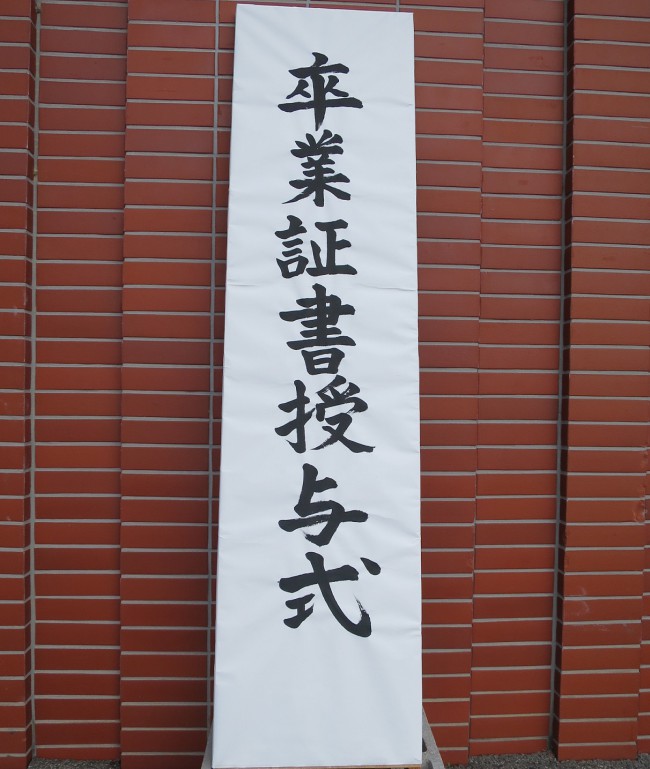 卒業証書授与式